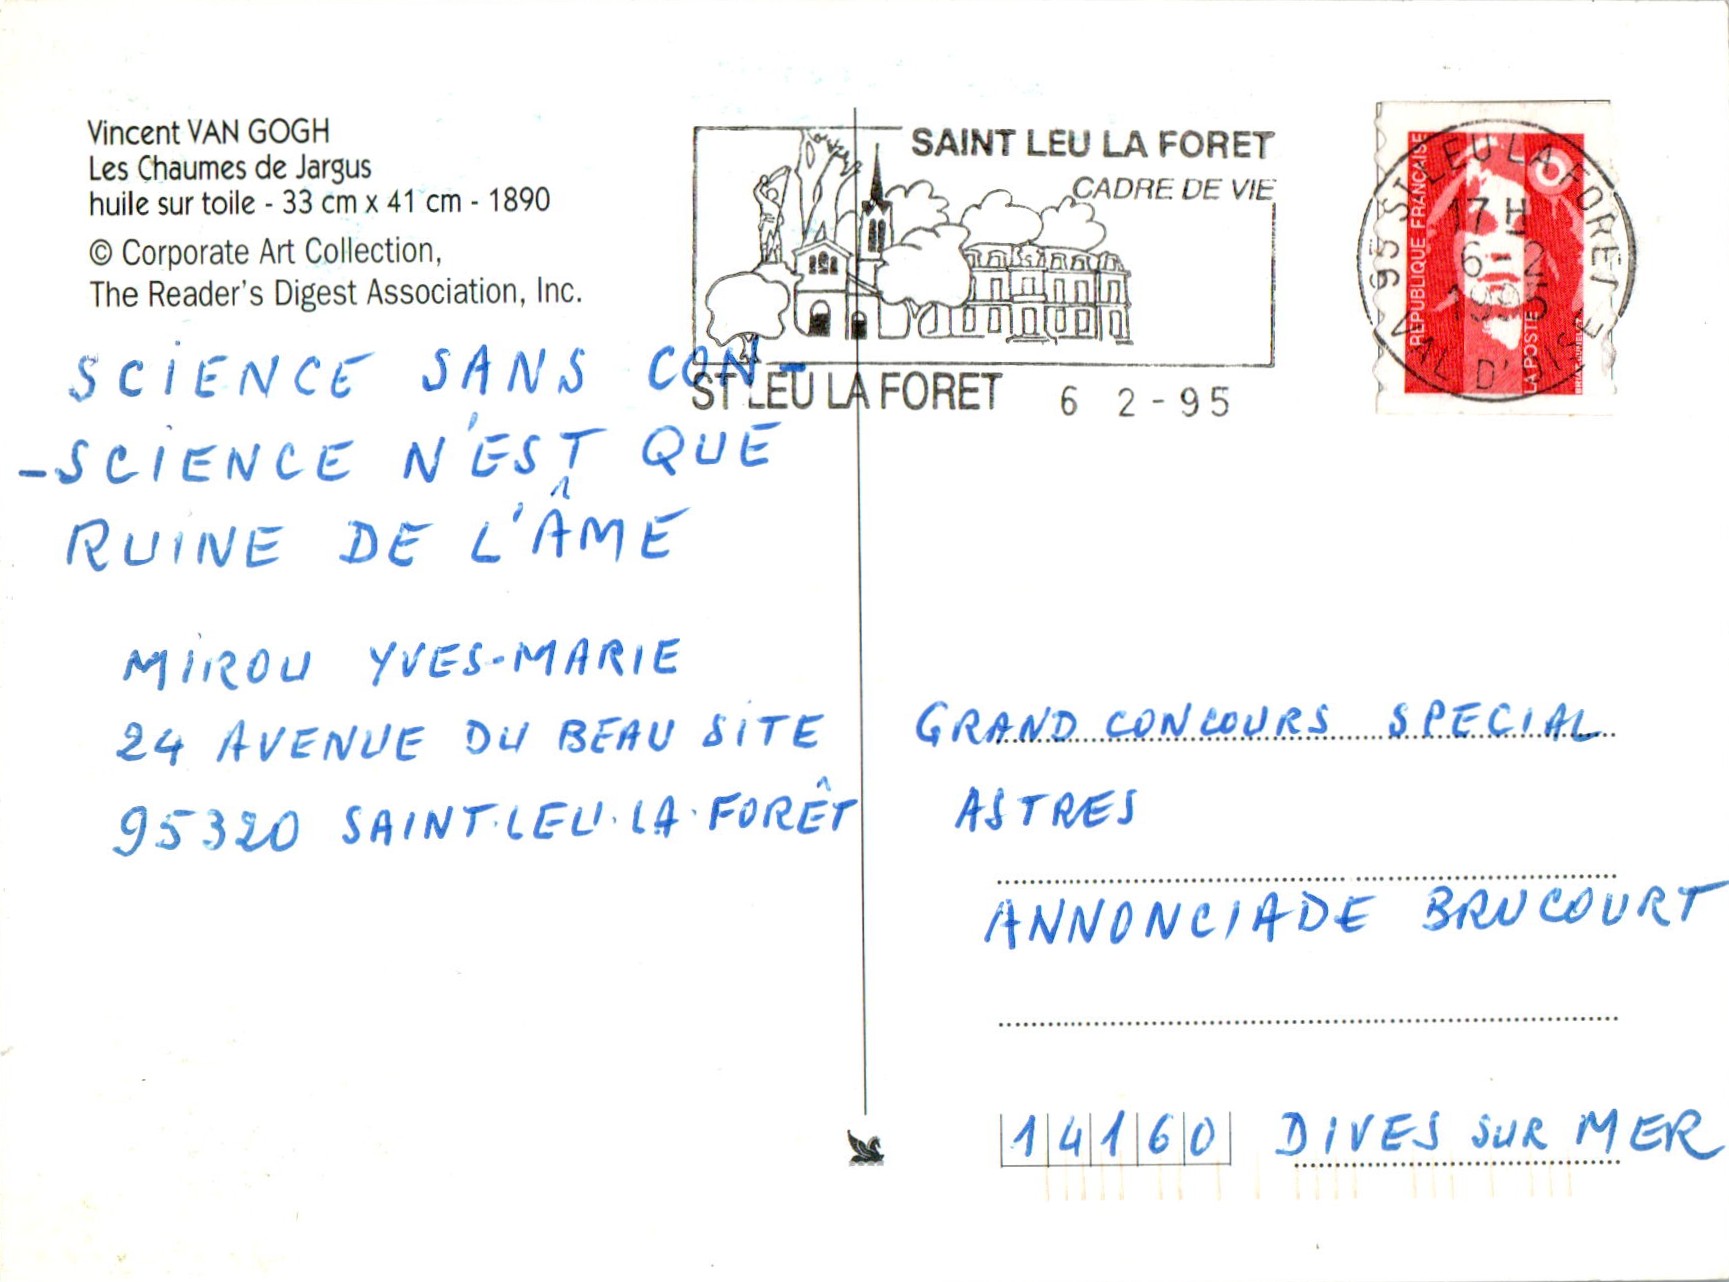 Vincent VAN GOGH
Les Chaumes de Jargus
huile sur toile - 33 cm x 41 cm - 1890
© Corporate Art Collection,
The Reader's Digest Association, Inc.
SCIENCE SANS CON-
-SCIENCE N'EST QUE
RUINE DE L'ÂME
MIROU YVES-MARIE
24 AVENUE DU BEAU SITE
95320 SAINT-LEU-LA-FORÊT
SAINT LEU LA FORET
CADRE DE VIE
ST LEU LA FORET 6 2-95
95 ST LEU LA FORET
17 H
6-2
1995
VAL D'OISE
REPUBLIQUE FRANÇAISE
LA POSTE
GRAND CONCOURS SPECIAL
ASTRES
ANNONCIADE BRUCOURT
14160 DIVES SUR MER